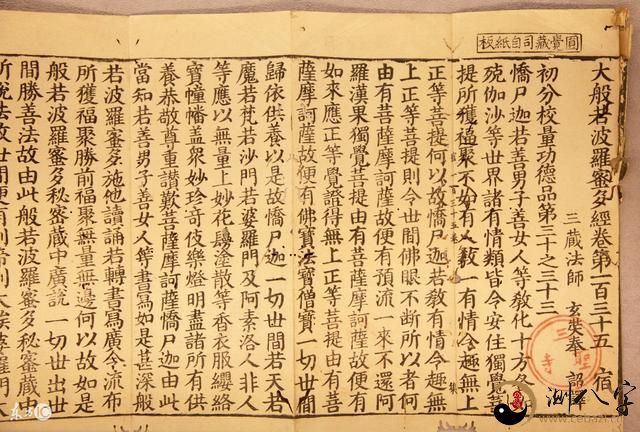 圓覺藏司自紙板
大般若波羅蜜多經卷第一百三十五 宿
三藏法師 玄奘奉 詔譯
初分校量功德品第三十之三十三
憍尸迦若善男子善女人等教化十方各
殑伽沙等世界諸有情類皆令安住獨覺菩
提所獲福聚不如有人教一有情令趣無上
正等菩提何以故憍尸迦若教有情令趣無
上正等菩提則令世間佛眼不斷所以者何
由有菩薩摩訶薩故便有預流一來不還阿
羅漢果獨覺菩提由有菩薩摩訶薩故便有
如來應正等覺證得無上正等菩提由有菩
薩摩訶薩故便有佛寶法寶僧寶一切世間
歸依供養以是故憍尸迦一切世間若天若
魔若梵若沙門若婆羅門及阿素洛人非人
等應以無量上妙花鬘塗散等香衣服纓絡
寶幢幡蓋衆妙珍奇伎樂燈明盡諸所有供
養恭敬尊重讚歎菩薩摩訶薩憍尸迦由此
當知若善男子善女人等書寫如是甚深般
若波羅蜜多施他讀誦若轉書寫廣令流布
所獲福聚勝前福聚無量無邊何以故如是
般若波羅蜜多秘密藏中廣說一切世出世
間勝善法故由此般若波羅蜜多秘密藏中
所說法故世間便有刹帝利大族婆羅門
三聖寺
测八字